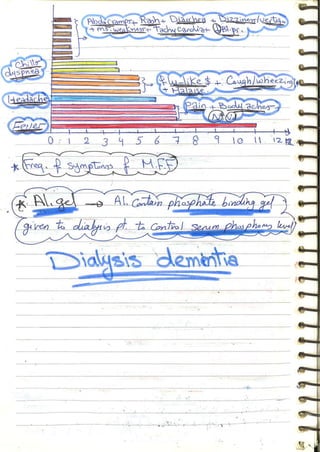 Abdo cramps + Rash + Diarrhea + Dizziness/Vertigo
+ ms. weakness + Tachycardia + ↓Bl.pr.
Chills
dyspnea
Flu like $ + Cough/wheezing
+ Malaise
Headache
Pain + Body aches
N/V
Fever
0 1 2 3 4 5 6 7 8 9 10 11 12
* Freq. of symptoms of M.F.F
* AL.gel → AL. Contain phosphate binding gel
given to dialysis pt. to control serum phosphorus level
Dialysis dementia